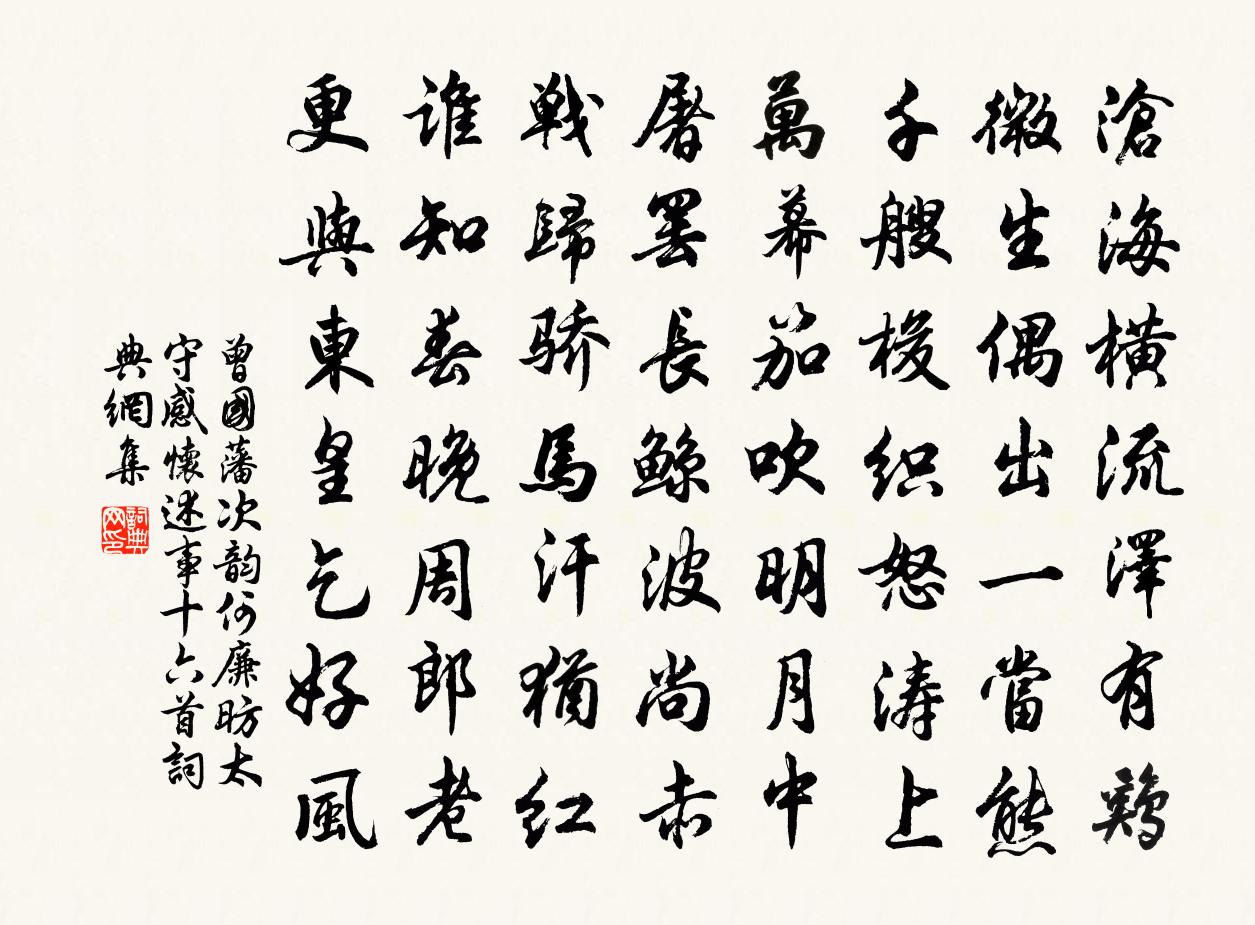 滄海橫流澤有鷄
微生偶出一當熊
千艘梭织怒涛上
萬幕笳吹明月中
屠罢長鲸波尚赤
戦歸骄馬汗猶红
谁知春晚周郎老
更與東皇乞好風
曾國藩次韵何廉昉太
守感懷述事十六首詞
典網集
詞典
网印